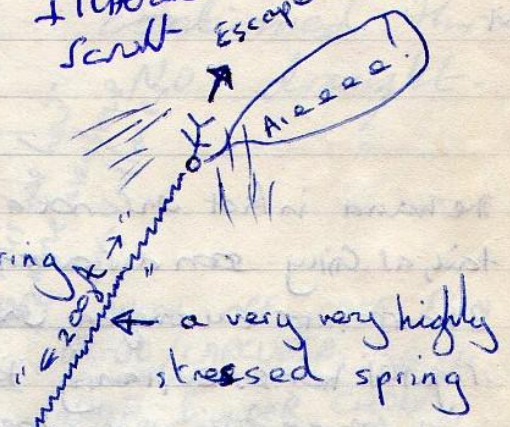 Scroll
Escape
Aieeee!
ring
"← 200ft →"
← a very very highly
stressed spring